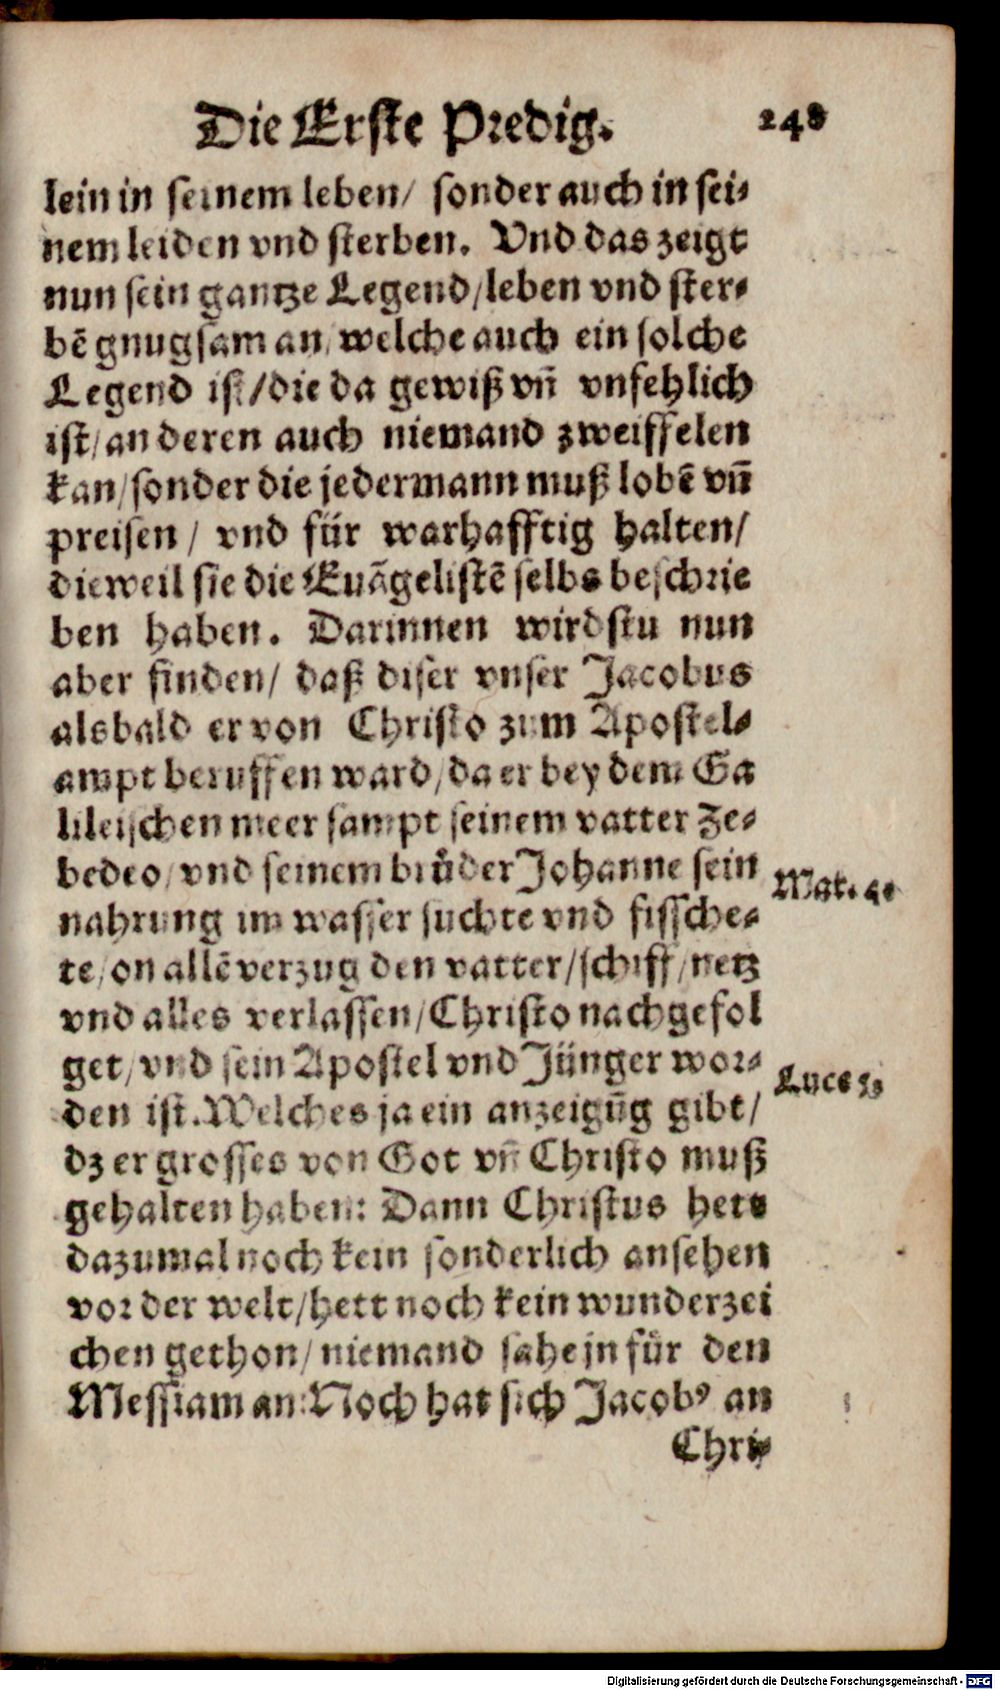 Die Erste Predig. 248
lein in seinem leben/ sonder auch in sei-
nem leiden vnd sterben. Vnd das zeigt
nun sein gantze Legend/leben vnd ster-
bẽ gnugsam an/welche auch ein solche
Legend ist/die da gewiß vñ vnfehlich
ist/an deren auch niemand zweiffelen
kan/sonder die jedermann muß lobẽ vñ
preisen/ vnd für warhafftig halten/
dieweil sie die Euãgelistẽ selbs beschrie
ben haben. Darinnen wirdstu nun
aber finden/ daß diser vnser Jacobus
alsbald er von Christo zum Apostel-
ampt beruffen ward/da er bey dem Ga
lileischen meer sampt seinem vatter Ze-
bedeo/vnd seinem brůder Johanne sein
Mat. 4.
nahrung im wasser suchte vnd fissche-
te/on allẽ verzug den vatter/schiff/netz
vnd alles verlassen/Christo nachgefol
get/vnd sein Apostel vnd Jünger wor-
Luce 5.
den ist. Welches ja ein anzeigũg gibt/
dz er grosses von Got vñ Christo muß
gehalten haben: Dann Christus hett
dazumal noch kein sonderlich ansehen
vor der welt/hett noch kein wunderzei
chen gethon/niemand sahe jn für den
Messiam an: Noch hat sich Jacobꝰ an
Chri-
Digitalisierung gefördert durch die Deutsche Forschungsgemeinschaft - DFG